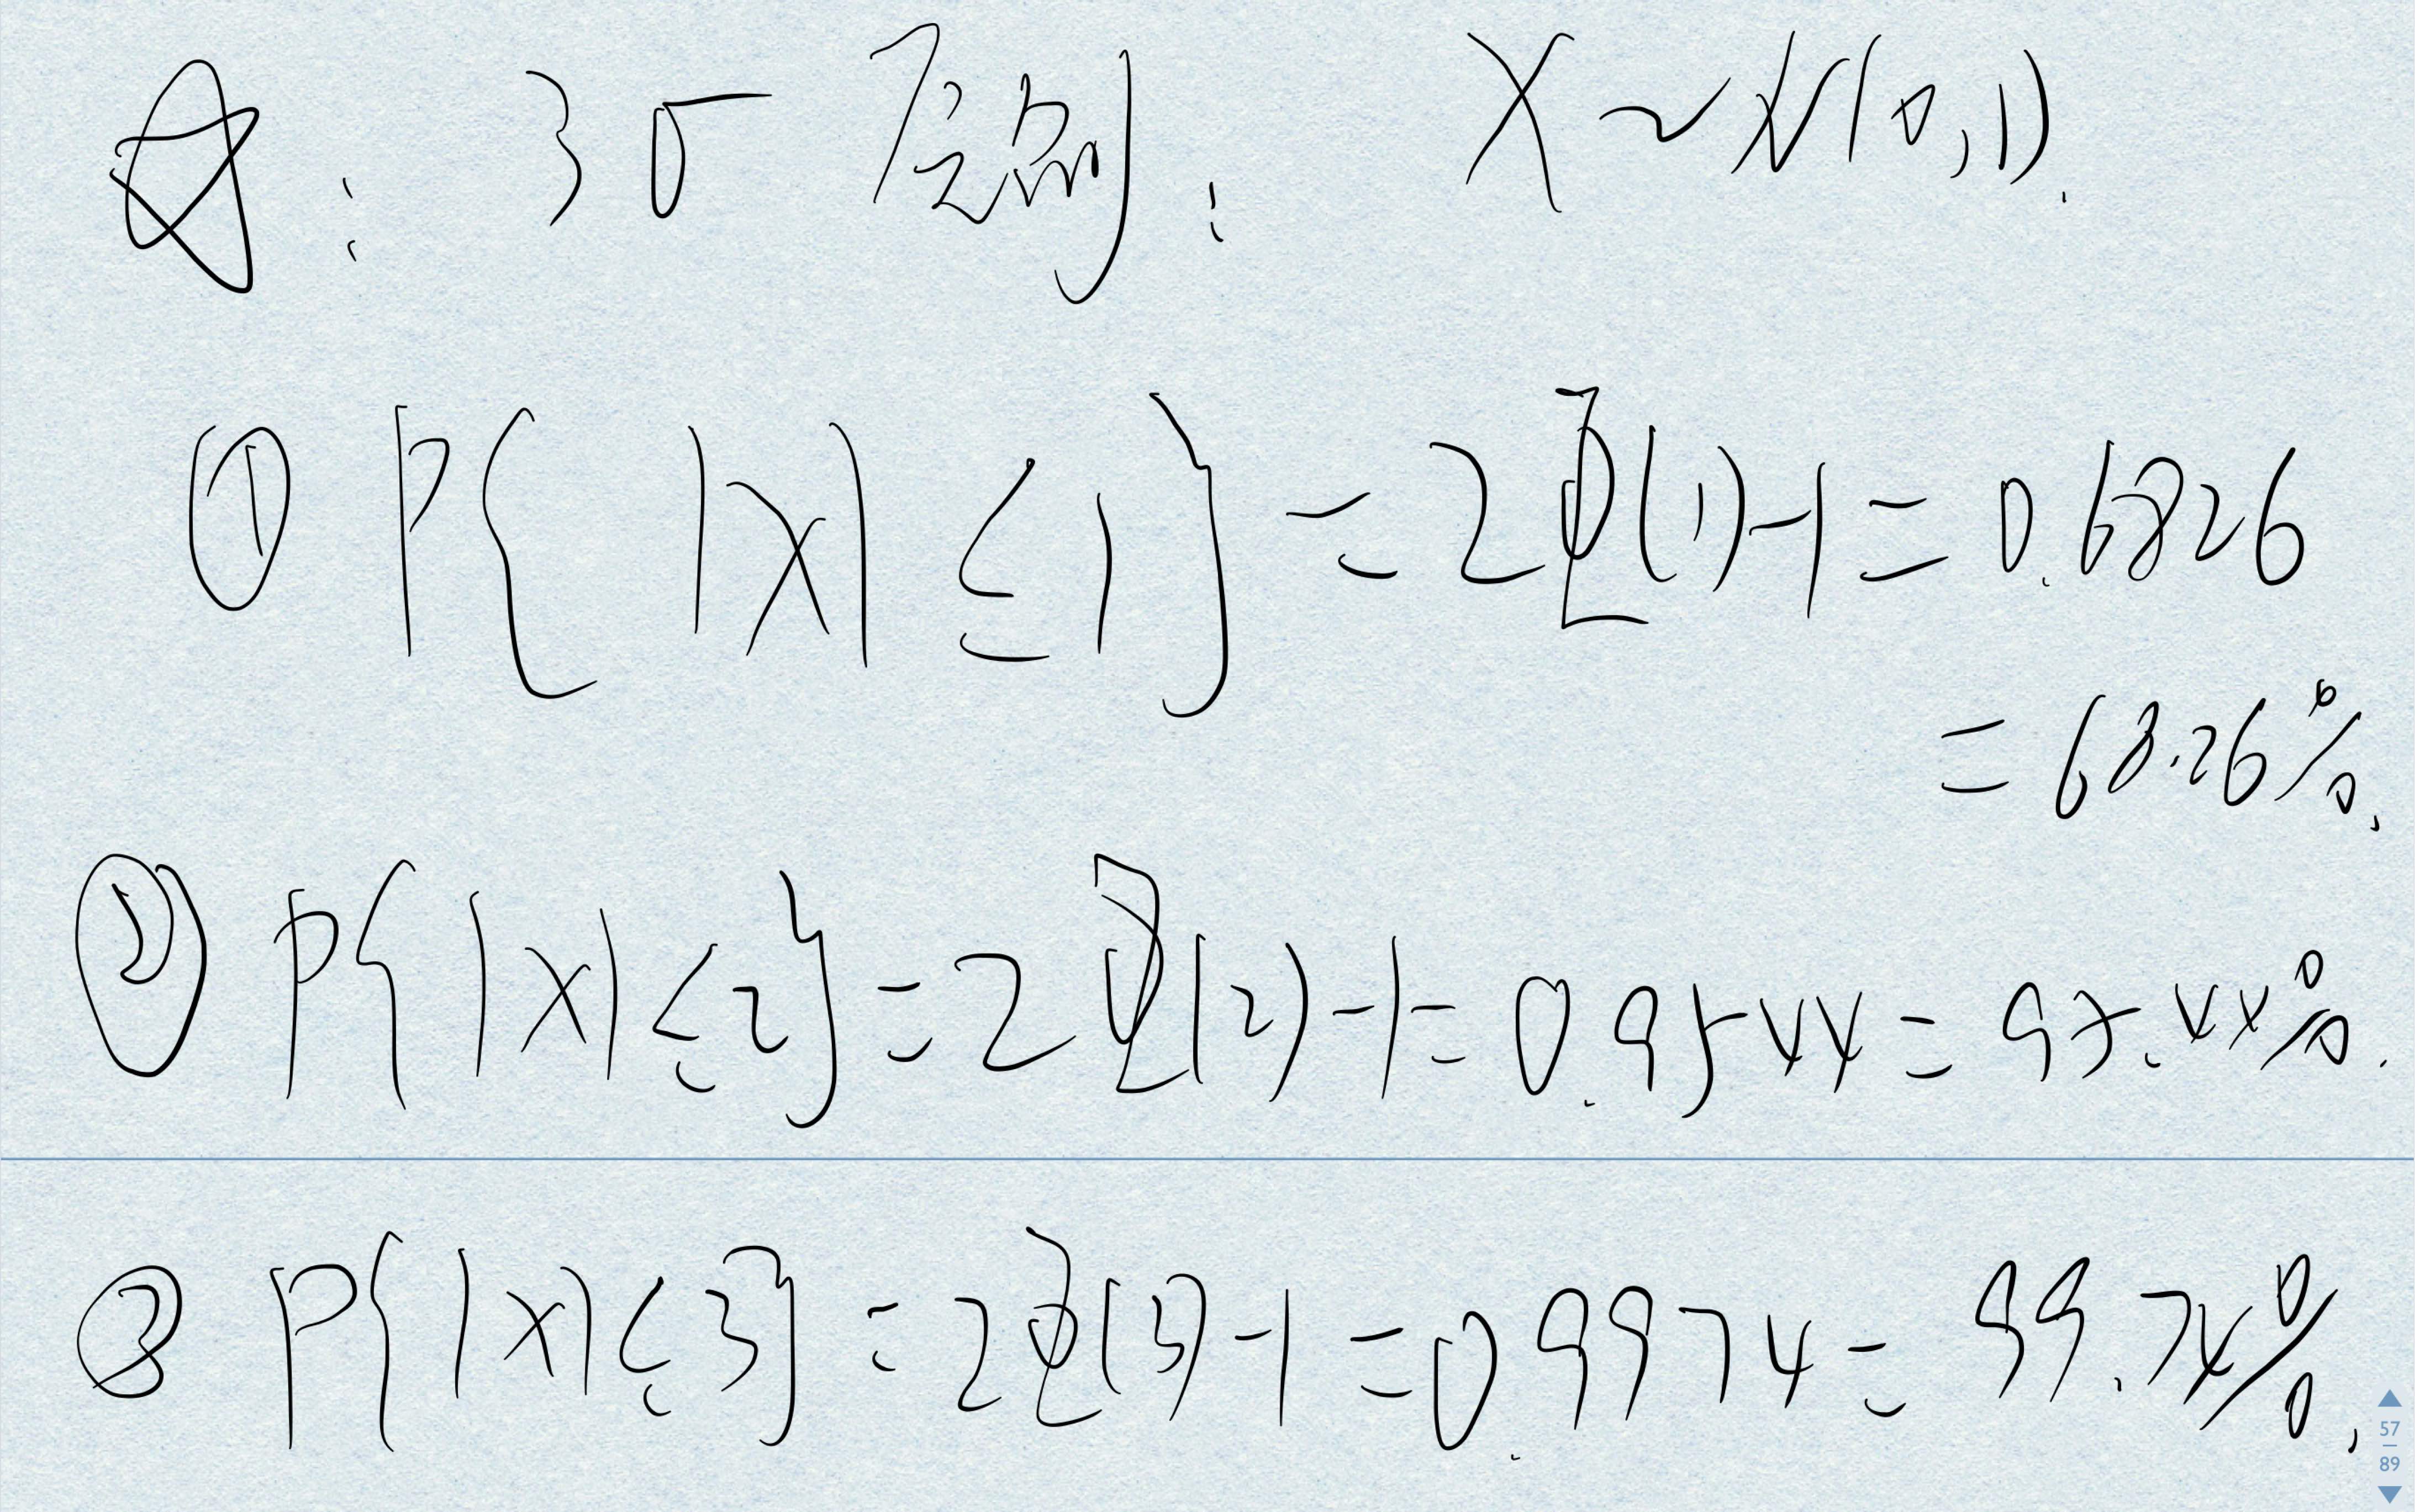 ☆: 3σ 原则: X~N(0,1).
① P{ |X| ≤ 1} = 2Φ(1)-1 = 0.6826
= 68.26%.
② P{|X|≤2} = 2Φ(2)-1 = 0.9544 = 95.44%.
③ P{|X|≤3} = 2Φ(3)-1 = 0.9974 = 99.74%.
57
89